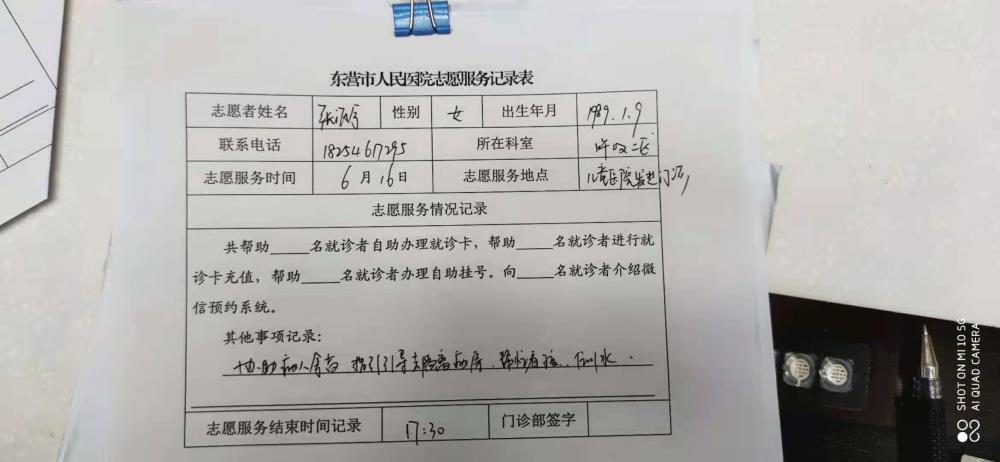 东营市人民医院志愿服务记录表
志愿者姓名 张 性别 女 出生年月 1989.1.9
联系电话 18254617295 所在科室 呼吸二区
志愿服务时间 6月16日 志愿服务地点 儿童医院发热门诊
志愿服务情况记录
共帮助____名就诊者自助办理就诊卡，帮助____名就诊者进行就
诊卡充值，帮助____名就诊者办理自助挂号。向____名就诊者介绍微
信预约系统。
其他事项记录：
协助病人拿药 指引引导去隔离病房.
志愿服务结束时间记录 17:30 门诊部签字
SHOT ON MI 10 5G
AI QUAD CAMERA